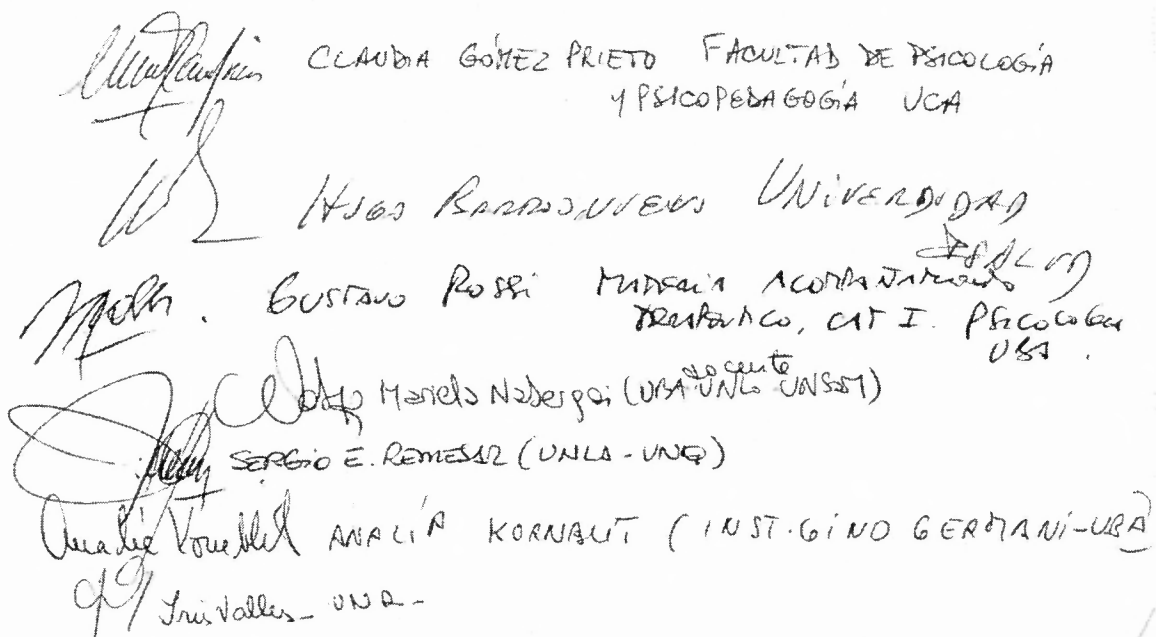 CLAUDIA GÓMEZ PRIETO FACULTAD DE PSICOLOGÍA
Y PSICOPEDAGOGÍA UCA
HUGO BARRIONUEVO UNIVERDIDAD
ISALUD
GUSTAVO ROSSI MATERIA ACOMPAÑAMIENTO
TERAPEUTICO, CAT I. PSICOLOGIA
UBA.
docente
Mariela Nabergoi (UBA UNLa UNSAM)
SERGIO E. REMESAR (UNLA - UNQ)
ANALÍA KORNBLIT (INST. GINO GERMANI-UBA)
Iris Valles - UNR -